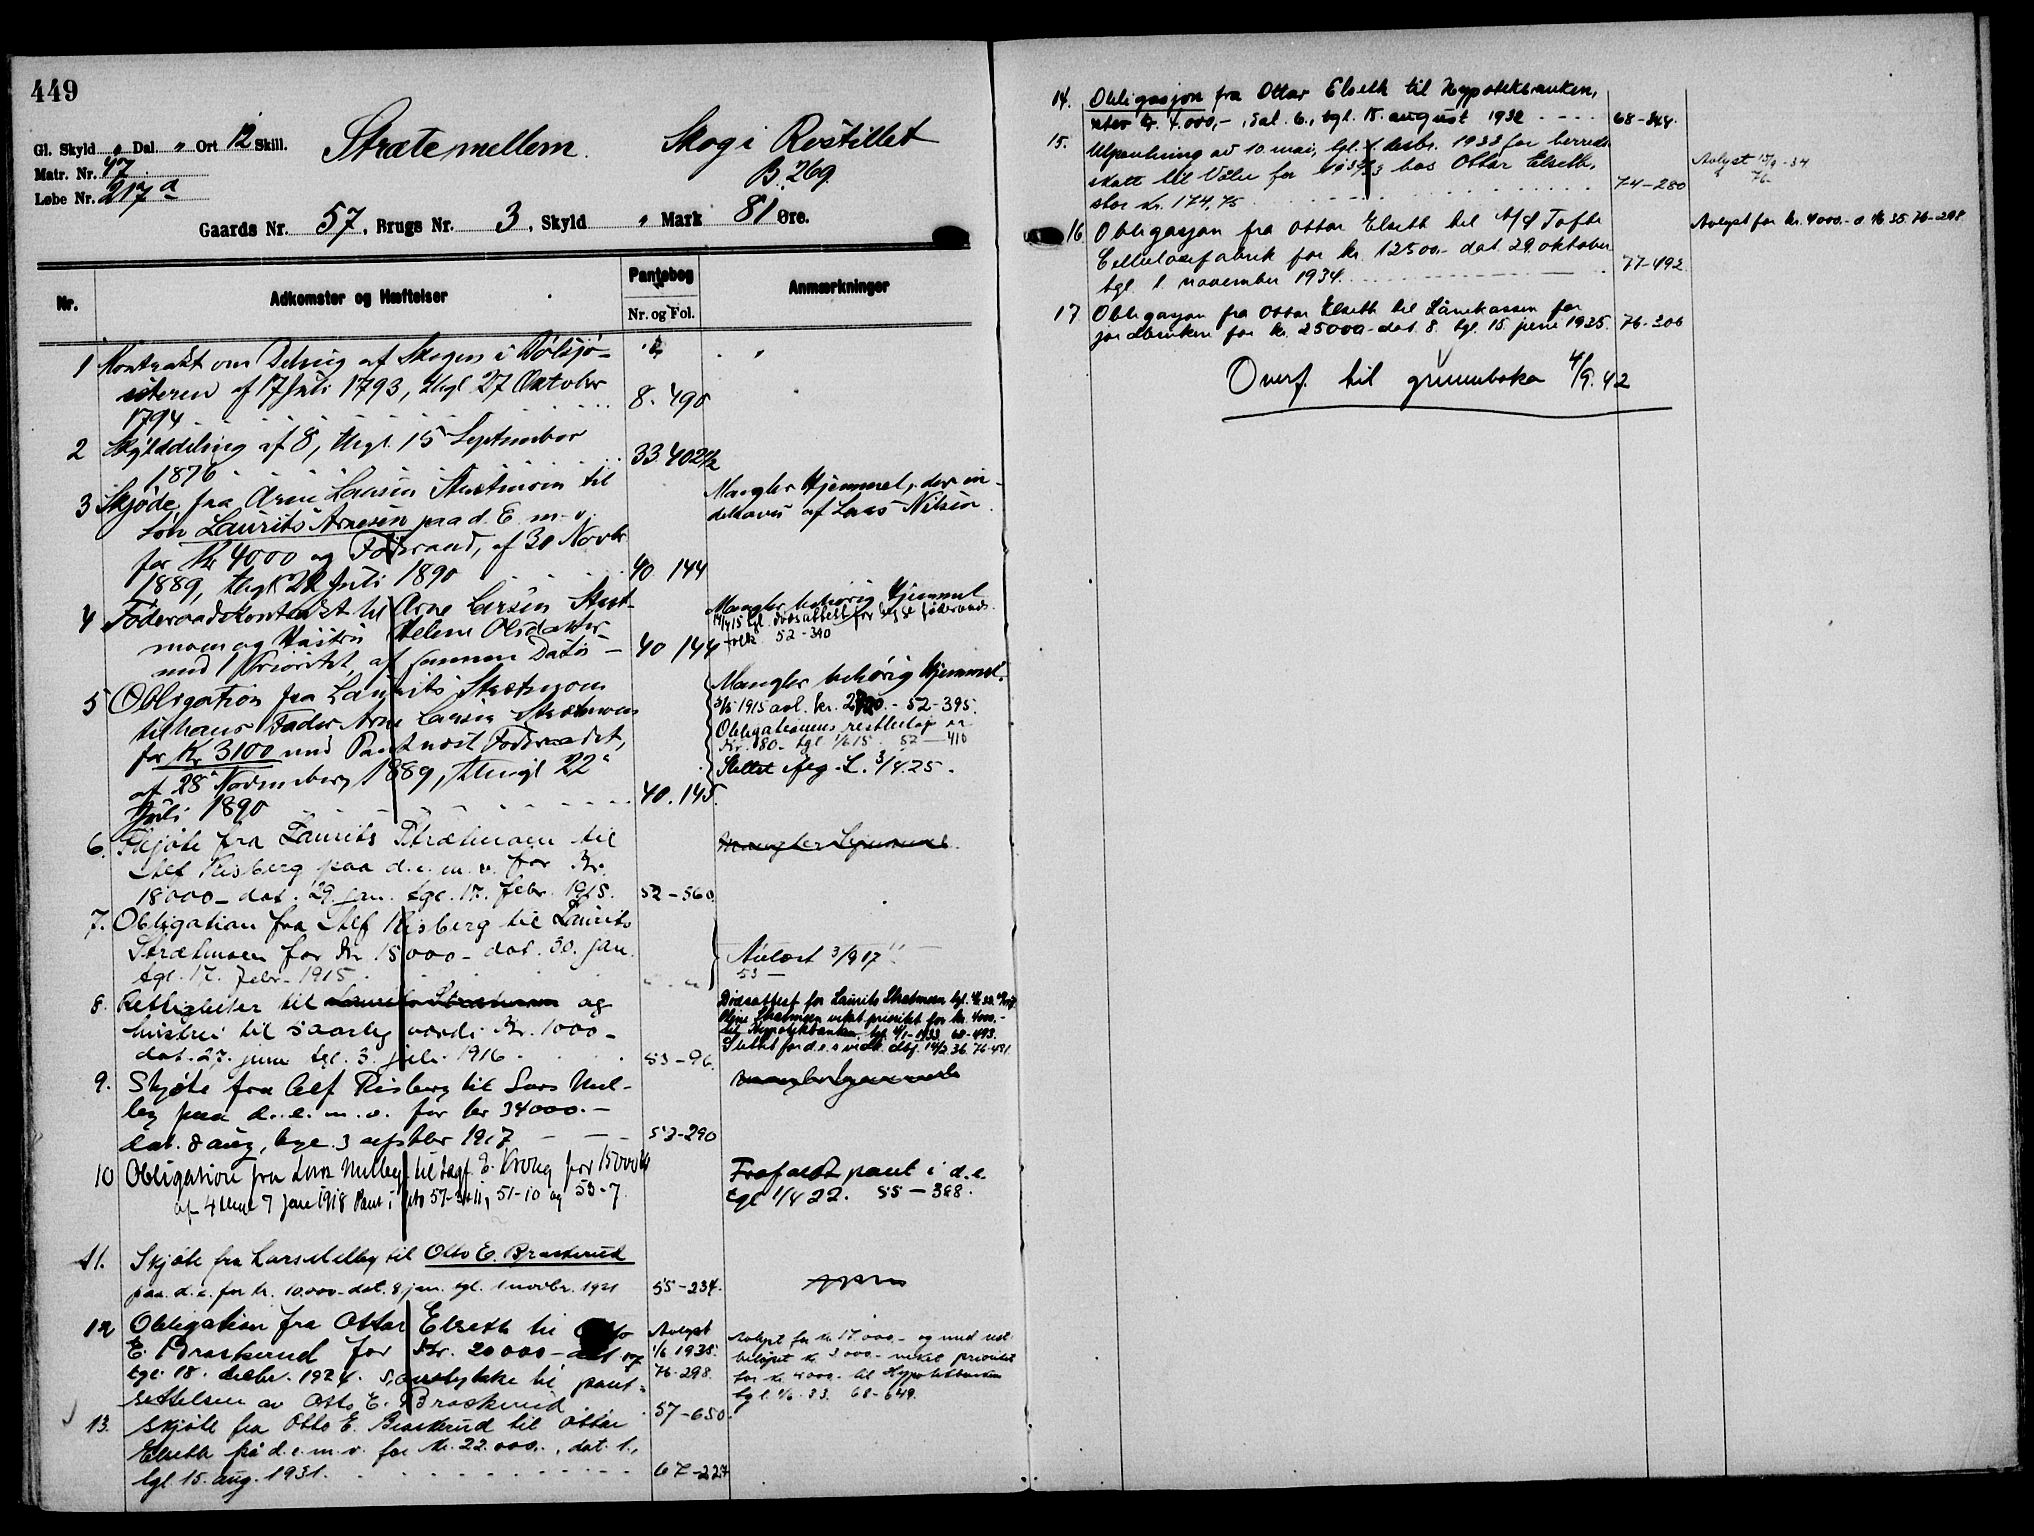 449
Gl. Skyld " Dal. " Ort 12 Skill.
Matr. Nr. 47
Løbe Nr. 217 a
Strætemellem. Skog i Rostillet
B. 269.
Gaards Nr. 57, Brugs Nr. 3, Skyld " Mark 81 Øre.
Nr.
Adkomster og Hæftelser
Pantebog
Nr. og Fol.
Anmærkninger
1 Kontrakt om Deling af Skogen i Dølsjø-
sæteren af 17 Juli 1793, thgl 27 Oktober
1794 8. 490
2 Skylddeling af 8, thgl. 15 September
1876 33 402 1/2
3 Skjøde fra Arne Larsen Strætmoen til
Søn Laurits Arnesen paa d. E. m. v.
for Kr 4000 og Føderaad, af 30 Novbr
1889, thgl 22 Juli 1890 40 144
Mangler Hjemmel, der in-
dehaves af Lars Nilsen.
4 Føderaadskontrakt til Arne Larsen Stræt-
moen og Hustru Helene Olsdatter
med 1 Prioritet, af samme Dato – 40 144
Mangler behörig Hjemmel
tgl. dødsattest for begge føderaads-
folk 52-390
5 Obligation fra Laurits Strætmoen
til hans Fader Arne Larsen Strætmoen
for Kr 3100 med Pant næst Føderaadet,
af 28 November 1889, thingl 22
Juli 1890 40. 145.
Mangler behörig Hjemmel.
3/5 1915 avl. kr. - 52-395.
Obligationens restbeløp er
Kr. 80.- tgl. 1/6 15. 52-410
Slettet iflg. L. 3/4.25.
6. Skjøte fra Laurits Strætmoen til
Alf Risberg paa d. e. m. v. for Kr.
18000 – dat. 29. jan. tgl. 17. febr. 1915. 52-360
Mangler hjemmel.
7. Obligation fra Alf Risberg til Laurits
Strætmoen for Kr 15000 – dat. 30. jan.
tgl. 17. febr. 1915. " - "
Avlæst 3/9 17
53 –
8. Rettigheter til Laurits Strætmoen og
hustru til 5aarlig værdi Kr. 1000 –
dat. 27. juni tgl. 3. juli 1916. 53-96.
Dødsattest for Laurits Strætmoen tgl.
Oline Strætmoen veket prioritet for kr. 4000.-
til Hypotekbanken tgl. 4/1-1933. 68-493.
Slettet for d. e. s vedk. 14/2.36. 76-491.
9. Skjøte fra Alf Risberg til Lars Mel-
by paa d. e. m. v. for kr 34000.-
dat. 8 aug, tgl. 3 septbr 1917 53-290
mangler hjemmel
10 Obligation fra Lars Melby til E. for 15000 kr
af 4 tgl 7 jan 1918 Pant i 57-3 11, 51-10 og 53-7.
Frafaldt pant i d.e.
tgl 1/4 22. 55-388.
11. Skjøte fra Lars Melby til Otto E. Braskerud
paa d.e. for kr. 10.000 – dat. 8 jan. tgl. 1 novbr. 1921 55-234.
12 Obligation fra Ottar Elseth til Otto
E. Braskerud for Kr. 20000 – dat 17
tgl. 18. decbr. 1924. Samtykke til pant-
settelsen av Otto E. Braskerud 57-650.
Avlyst
1/6 1935
76-298.
Avlyst for kr 17.000.- og med rest-
beløpet kr. 3000.- veket prioritet
for kr. 4000.- til Hypotekbanken
tgl. 1/6-33. 68-649.
13. Skjøte fra Otto E. Braskerud til Ottar
Elseth på d. e. m. v. for kr. 22.000.-, dat. 1.,
tgl. 15. aug. 1931. 67-227
14. Obligasjon fra Ottar Elseth til Hypotekbanken,
stor kr. 4.000,-, dat. 6., tgl. 15. august 1932 68-348.
15. Utpantning av 10. mai, tgl. 1. desbr. 1933 for herreds-
skatt til Våler for 1932/33 hos Ottar Elseth,
stor kr. 174,75 74-280
Avlyst 15/9-34
76-
16 Obligasjon fra Ottar Elseth til A/S Tofte
Cellulosefabrik for kr. 12500.- dat. 29. oktober
tgl. 1. november 1934. 77-492.
Avlyst for kr. 4000.- 1/6 35 76-298.
17 Obligasjon fra Ottar Elseth til Lånekassen for
jordbruken for kr. 25000.- dat. 8. tgl. 15. juni 1935. 76-306
Overf. til grunnboka 4/9.42